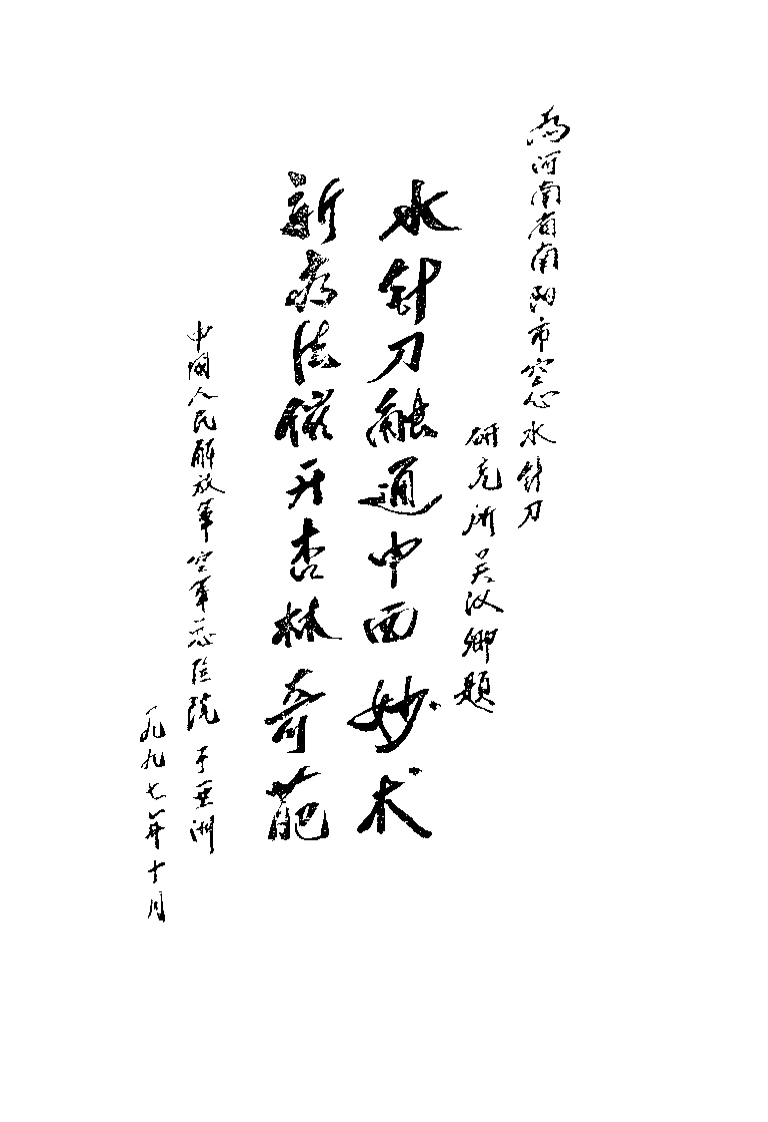 为河南省南阳市空心水针刀
研究所吴汉卿题
水针刀融通中西妙术
新疗法催开杏林奇葩
中国人民解放军空军总医院 于亚洲
一九九七年十月